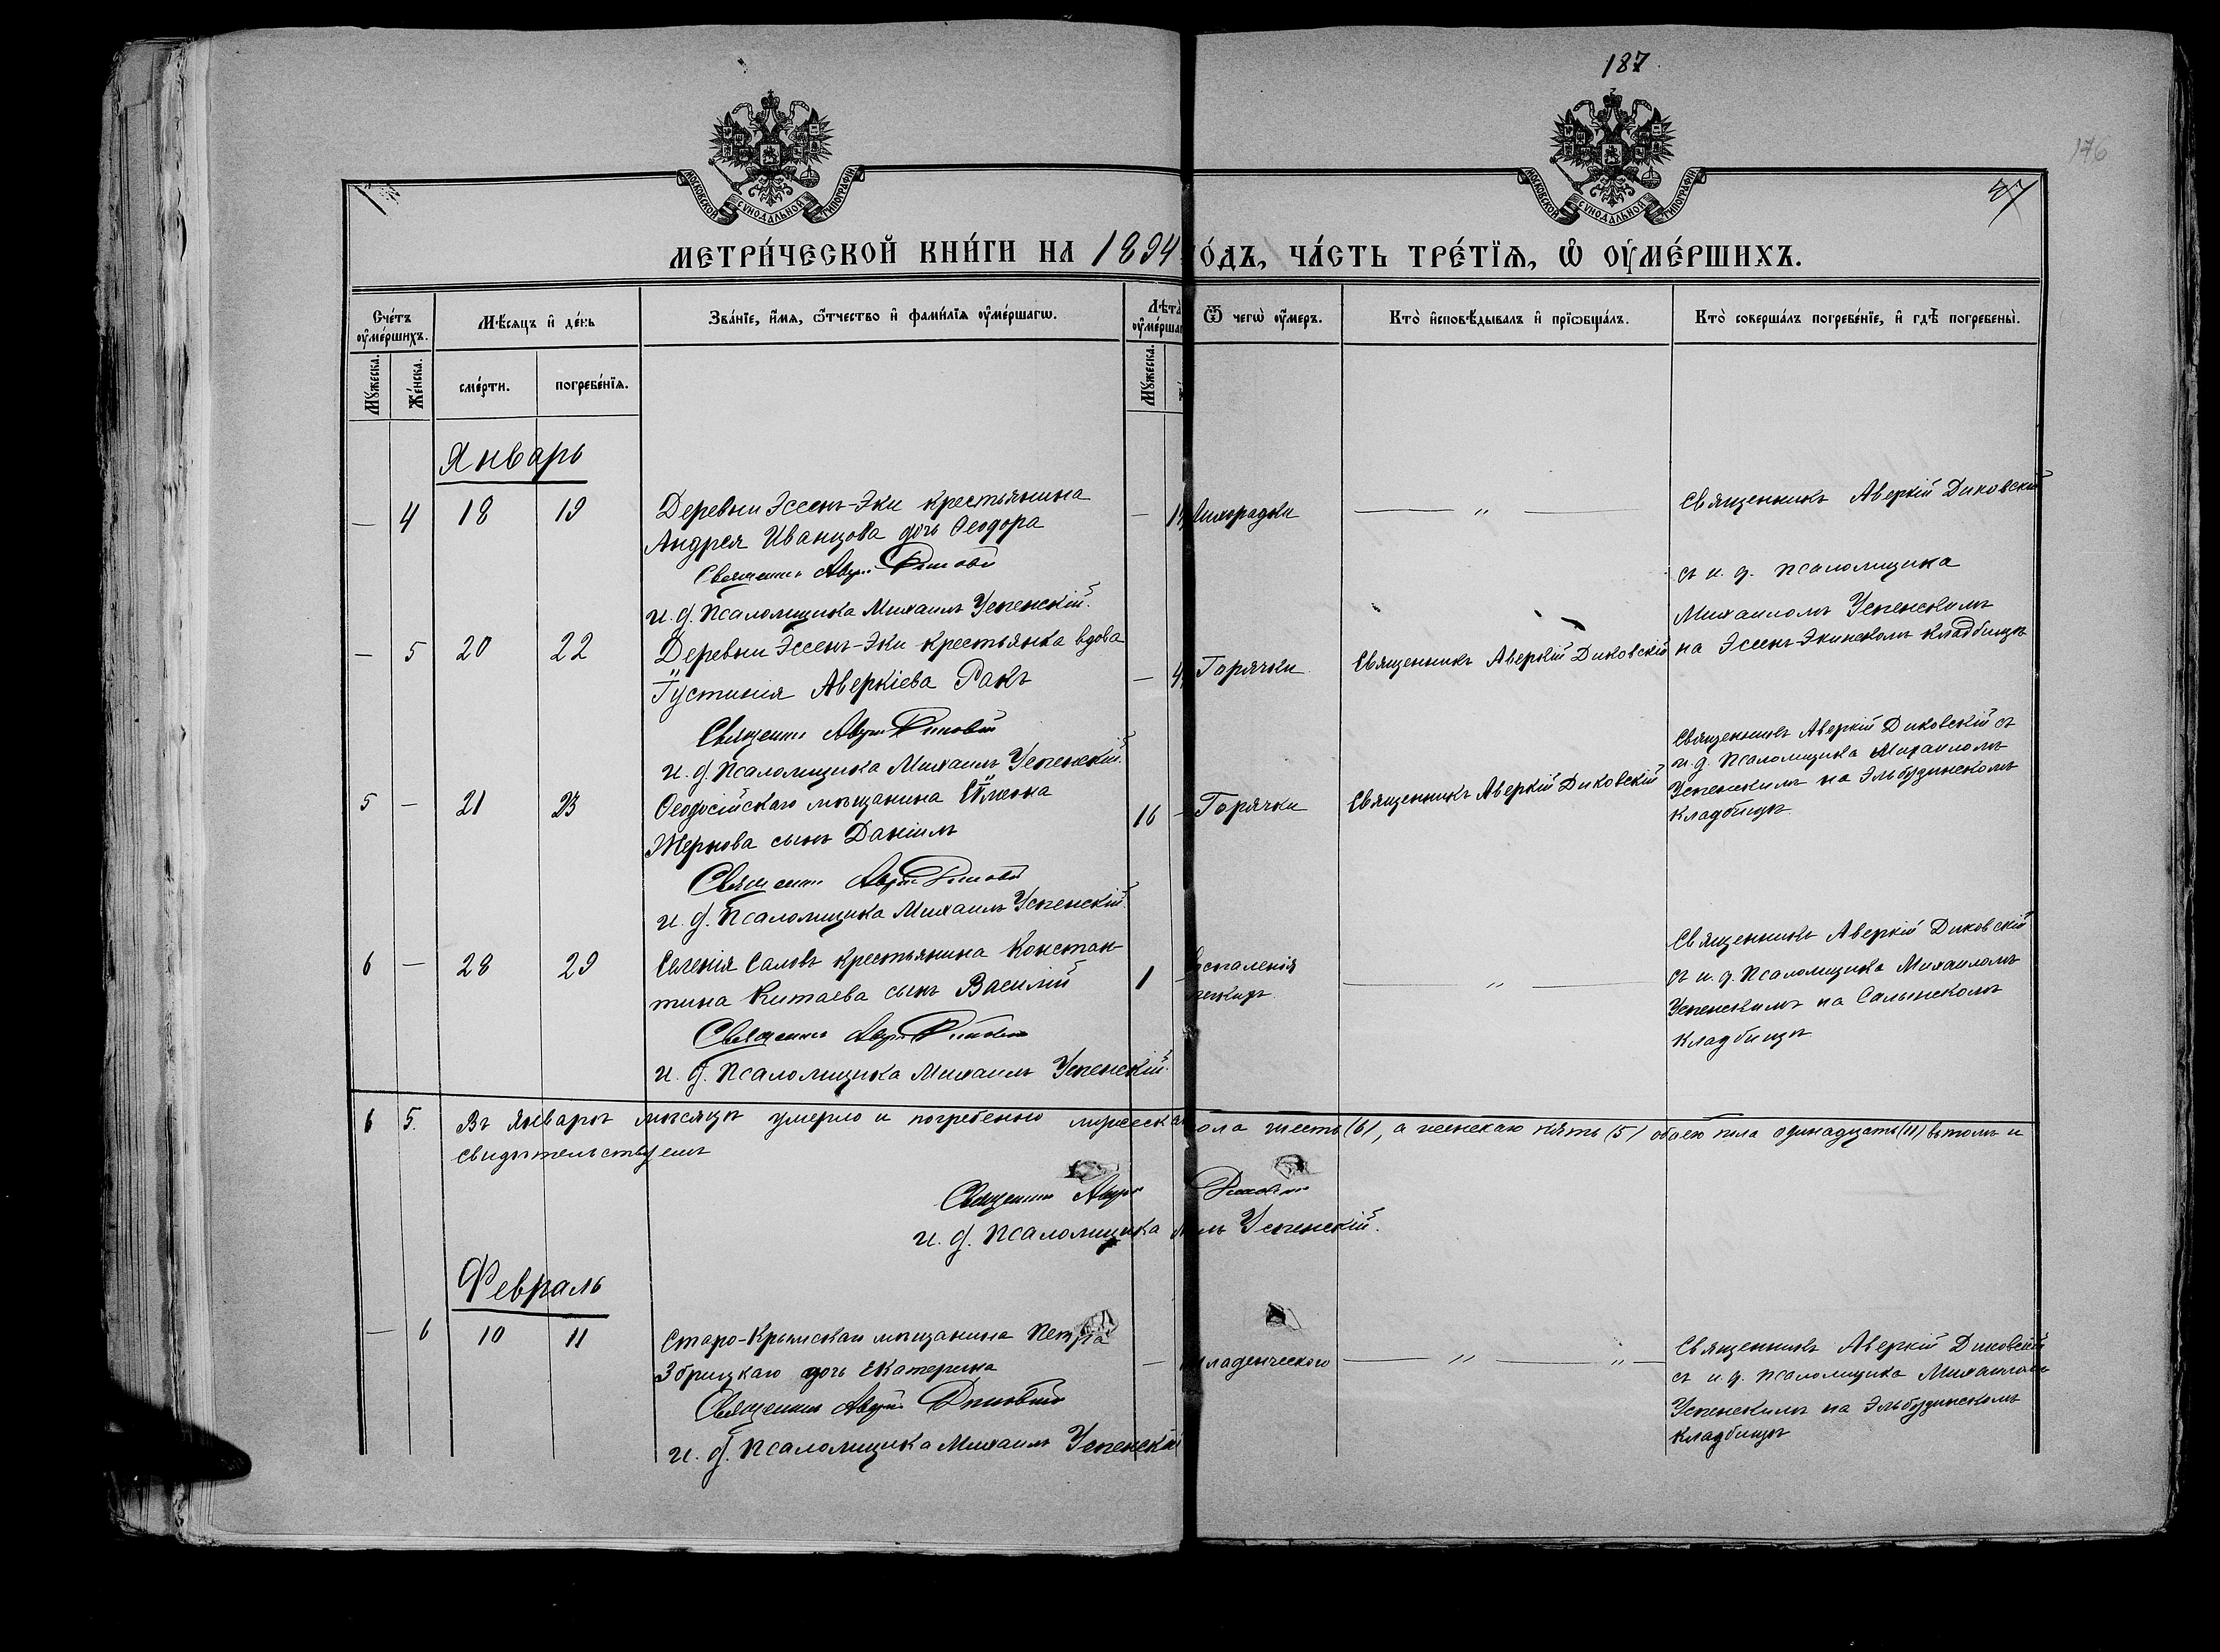 187
176
МОСКОВСКОЙ СУНОДАЛЬНОЙ ТИПОГРАФІИ
МОСКОВСКОЙ СУНОДАЛЬНОЙ ТИПОГРАФІИ
МЕТРИ́ЧЕСКОЙ КНИ́ГИ НА 1894 О́ДЪ, ЧА́СТЬ ТРЕ́ТІѦ, Ѽ ОУМЕ́РШИХЪ.
Сче́тъ оуме́ршихъ.
Мѣ́сяцъ и де́нь
Зва́ніе, и́мя, ѻ҆́тчество и фами́лія оуме́ршагѡ.
Лѣта̀ оуме́ршаг
Ѿ чегѡ̀ оу́меръ.
Кто̀ исповѣ́дывалъ и пріѡбща́лъ.
Кто̀ соверша́лъ погребе́ніе, и гдѣ̀ погребены̀.
Мꙋ́жеска.
Же́нска.
сме́рти.
погребе́нія.
Мꙋ́жеска.
Январь
— 4 18 19 Деревни Эссенъ-Эки крестьянина
Андрея Иванцова дочь Ѳеодора
Священникъ
и. д. Псаломщика Михаилъ Успенскій.
— Лихорадки — " —
Священникъ Аверкій Диковскій
съ и. д. псаломщика
Михаиломъ Успенскимъ
на Эссенъ-Экинскомъ кладбищѣ
— 5 20 22 Деревни Эссенъ-Эки крестьянка вдова
Іустинія Аверкіева Ракъ
Священникъ
и. д. Псаломщика Михаилъ Успенскій.
— Горячки Священникъ Аверкій Диковскій
Священникъ Аверкій Диковскій съ
и. д. Псаломщика Михаиломъ
Успенскимъ на Эльбузинскомъ
кладбищѣ
5 — 21 23 Ѳеодосійскаго мѣщанина
Жернова сынъ Даніилъ
Священникъ
и. д. Псаломщика Михаилъ Успенскій.
16 — Горячки Священникъ Аверкій Диковскій
6 — 28 29 Евгенія Саловъ крестьянина Констан-
тина Китаева сынъ Василій
Священникъ
и. д. Псаломщика Михаилъ Успенскій.
1 — " —
Священникъ Аверкій Диковскій
съ и. д. Псаломщика Михаиломъ
Успенскимъ на Салынскомъ
кладбищѣ
6 5. Въ Январѣ мѣсяцѣ умерло и погребено мужеска ола шесть (6), а женскаго пять (5) обоего пола одинадцать (11) въ томъ и
свидѣтельствуемъ
Священникъ
и. д. Псаломщика илъ Успенскій.
Февраль
— 6 10 11 Старо-Крымскаго мѣщанина Петра
Збрицкаго дочь Екатерина
Священникъ
и. д. Псаломщика Михаилъ Успенскій
— ладенческого — " — " —
Священникъ Аверкій Диковскій
съ и. д. псаломщика Михаиломъ
Успенскимъ на Эльбузинскомъ
кладбищѣ